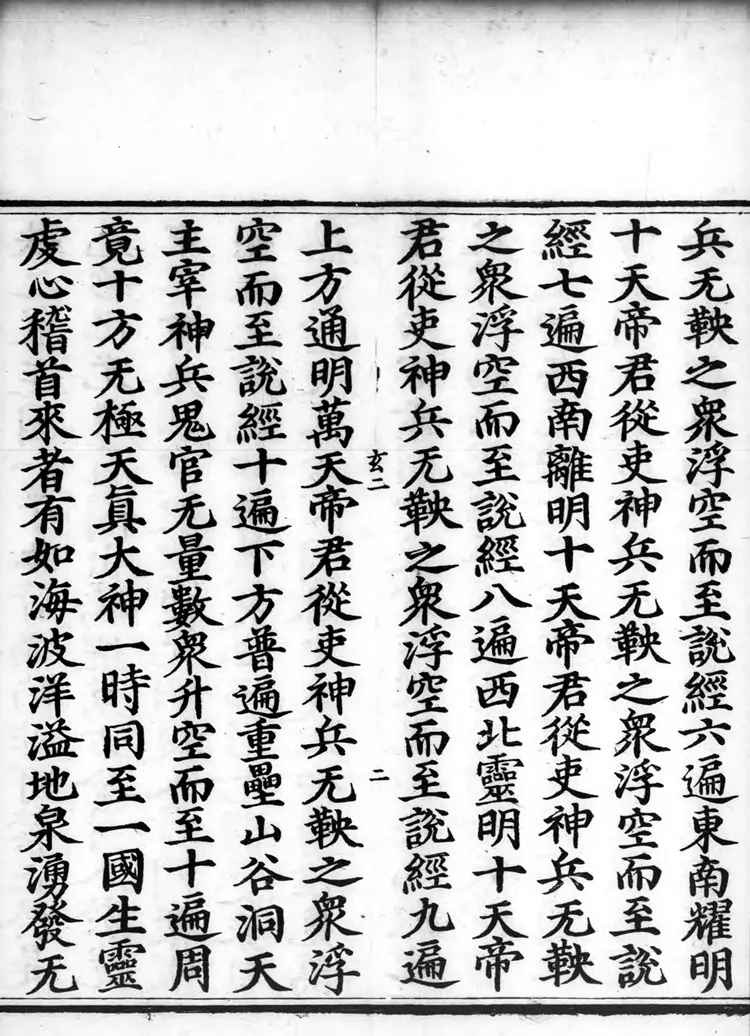 兵无鞅之衆浮空而至說經六遍東南耀明
十天帝君從吏神兵无鞅之衆浮空而至說
經七遍西南離明十天帝君從吏神兵无鞅
之衆浮空而至說經八遍西北靈明十天帝
君從吏神兵无鞅之衆浮空而至說經九遍
玄二
二
上方通明萬天帝君從吏神兵无鞅之衆浮
空而至說經十遍下方普遍重壘山谷洞天
主宰神兵鬼官无量數衆升空而至十遍周
竟十方无極天真大神一時同至一國生靈
虔心稽首來者有如海波洋溢地泉湧發无